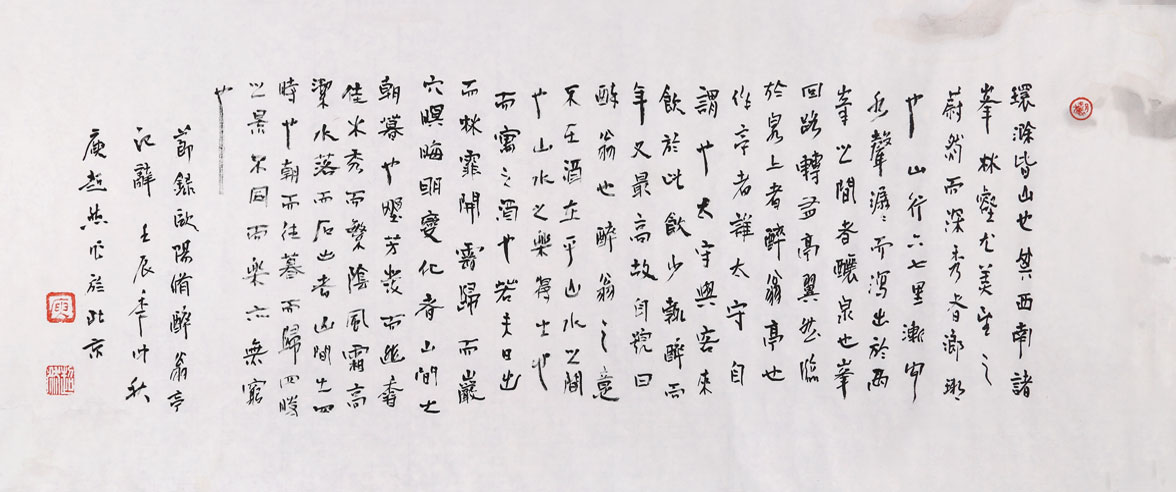 環滁皆山也其西南諸
峯林壑尤美望之
蔚然而深秀者瑯琊
也山行六七里漸聞
水聲潺々而瀉出於兩
峯之間者釀泉也峯
回路轉有亭翼然臨
於泉上者醉翁亭也
作亭者誰太守自
謂也太守與客來
飲於此飲少輒醉而
年又最高故自號曰
醉翁也醉翁之意
不在酒在乎山水之間
也山水之樂得之心
而寓之酒也若夫日出
而林霏開雲歸而巖
穴暝晦明變化者山間之
朝暮也野芳發而幽香
佳木秀而繁陰風霜高
潔水落而石出者山間之四
時也朝而往暮而歸四時
之景不同而樂亦無窮
也
節錄歐陽脩醉翁亭
記辭 壬辰年仲秋
庚超然作於北京